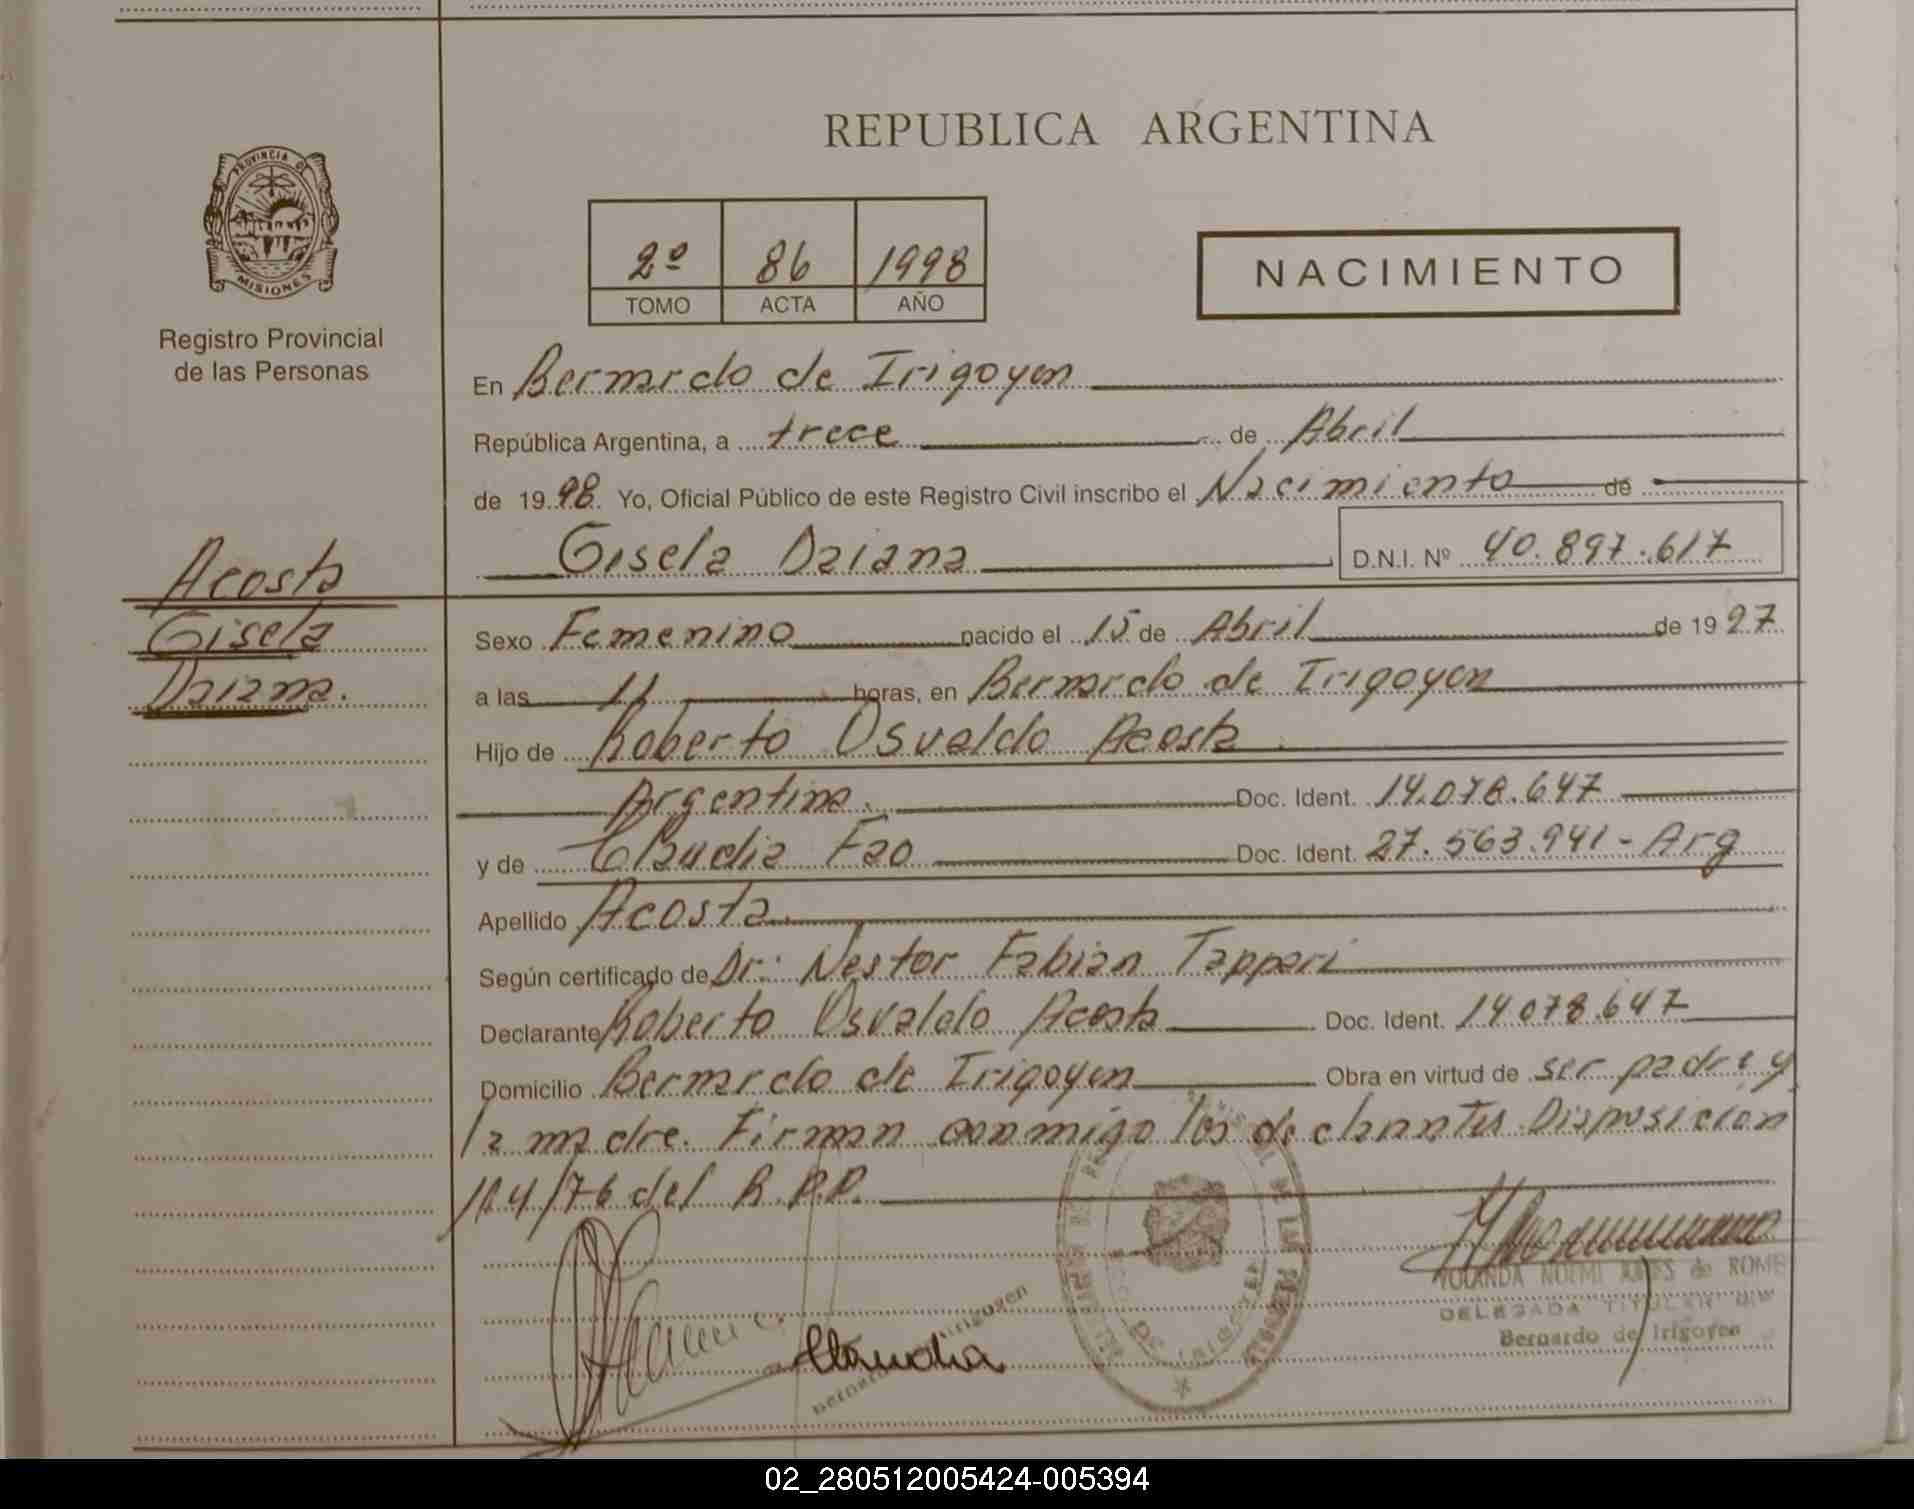 REPUBLICA ARGENTINA
PROVINCIA DE
MISIONES
Registro Provincial
de las Personas
2º 86 1998
TOMO ACTA AÑO
NACIMIENTO
En Bernardo de Irigoyen
República Argentina, a trece de Abril
de 1998 Yo, Oficial Público de este Registro Civil inscribo el Nacimiento de
Gisela Daiana D.N.I. Nº 40.897.617
Acosta
Gisela
Daiana.
Sexo Femenino nacido el 15 de Abril de 1997
a las 11 horas, en Bernardo de Irigoyen
Hijo de Roberto Osvaldo Acosta
Argentina. Doc. Ident. 14.078.647
y de Claudia Fao Doc. Ident. 27.563.941 - Arg
Apellido Acosta
Según certificado de Dr: Nestor Fabian Tappari
Declarante Roberto Osvaldo Acosta Doc. Ident. 14078.647
Domicilio Bernardo de Irigoyen Obra en virtud de ser padre y
la madre. Firman conmigo los declarantes Disposicion
104/76 del R.P.P.
Claudia
YOLANDA NOEMI de ROME
DELEGADA TITULAR
Bernardo de Irigoyen
02_280512005424-005394